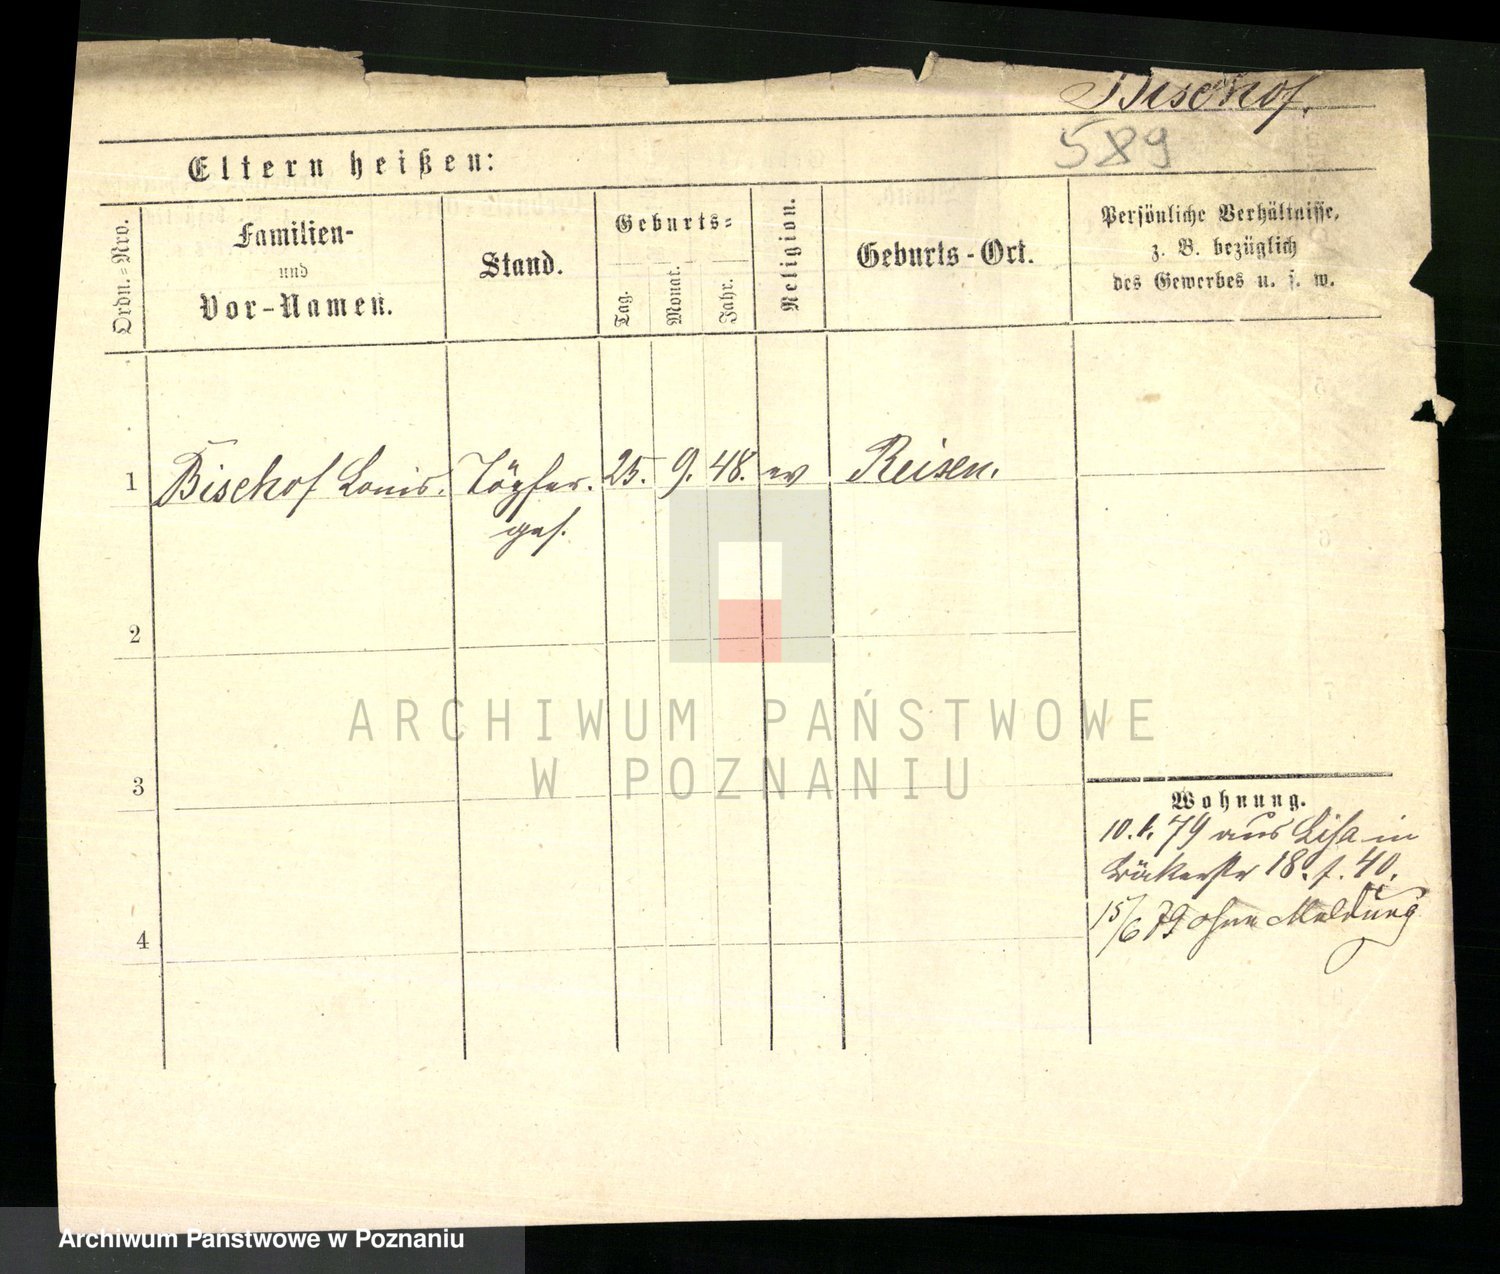 Bischof.
589
Eltern heißen:
Ordn.=Nro.
Familien-
und
Vor-Namen.
Stand.
Geburts=
Tag.
Monat.
Jahr.
Religion.
Geburts-Ort.
Persönliche Verhältnisse,
z. B. bezüglich
des Gewerbes u. s. w.
1 Bischof Louis. Töpfer- 25. 9. 48. ev Reisen.
ges.
2
3
4
Wohnung.
10. 1. 79 aus Lissa in
Bäckerstr 18. f. 40.
15/6 79 ohne Meldung
ARCHIWUM PAŃSTWOWE
W POZNANIU
Archiwum Państwowe w Poznaniu